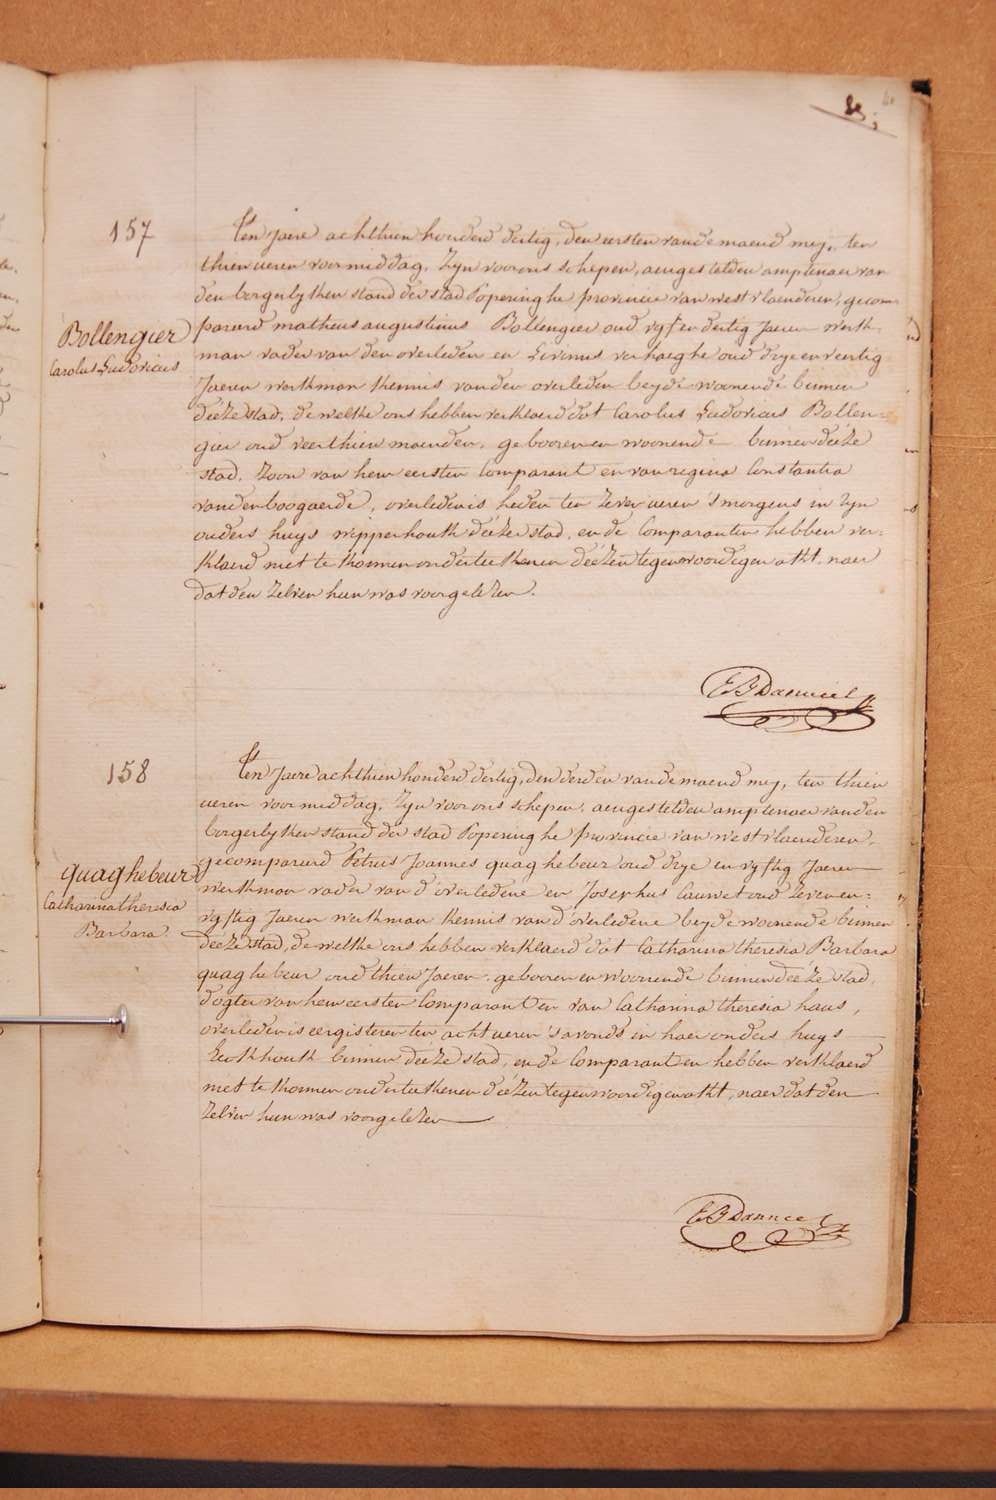 157
Ten Jaere achthien honderd dertig, den eersten vande maend mey, ten
thien ueren voormiddag, zyn voor ons schepen, aengestelden amptenaer van
den borgerlyken stand der stad Poperinghe provincie van westvlaenderen, gecom=
pareerd matheus augustinus Bollengier oud vyf en dertig Jaeren werk=
man vader van den overleden en Livinus verhaeghe oud drye en veertig
Jaeren werkman kennis van den overleden beyde woonende binnen
deéze stad, de welke ons hebben verklaerd dat Carolus Ludovicus Bollen=
gier oud veerthien maenden, gebooren en woonende binnen deéze
stad, zoon van hem eersten Comparant en van regina Constantia
vandenboogaerde, overleden is heden ten zeven ueren 's morgens in zyn
ouders huys wipperhouk deézer stad, en de Comparanten hebben ver=
klaerd niet te konnen onderteekenen deézen tegenwoordigen akt, naer
dat den zelven hun was voorgelezen.
Bollengier
Carolus Ludovicus
158
Ten Jaere achthien honderd dertig, den derden vande maend mey, ten thien
ueren voormiddag, zyn voor ons schepen, aengestelden amptenaer van den
borgerlyken stand der stad Poperinghe provincie van westvlaenderen,
gecompareerd Petrus Joannes quaghebeur oud drye en vyftig Jaeren
werkman vader van d'overledene en Josephus Cauwet oud zeven en=
vyftig Jaeren werkman kennis van d'overledene beyde woonende binnen
deéze stad, de welke ons hebben verklaerd dat Catharina theresia Barbara
quaghebeur oud thien Jaeren, gebooren en woonende binnen deéze stad,
dogter van hem eersten Comparant en van Catharina theresia haus,
overleden is eergisteren ten acht ueren 's avonds in haer ouders huys
binnen deéze stad, en de Comparanten hebben verklaerd
niet te konnen onderteekenen deézen tegenwoordigen akt, naer dat den
zelven hun was voorgelezen
quaghebeur
Catharina theresia
Barbara